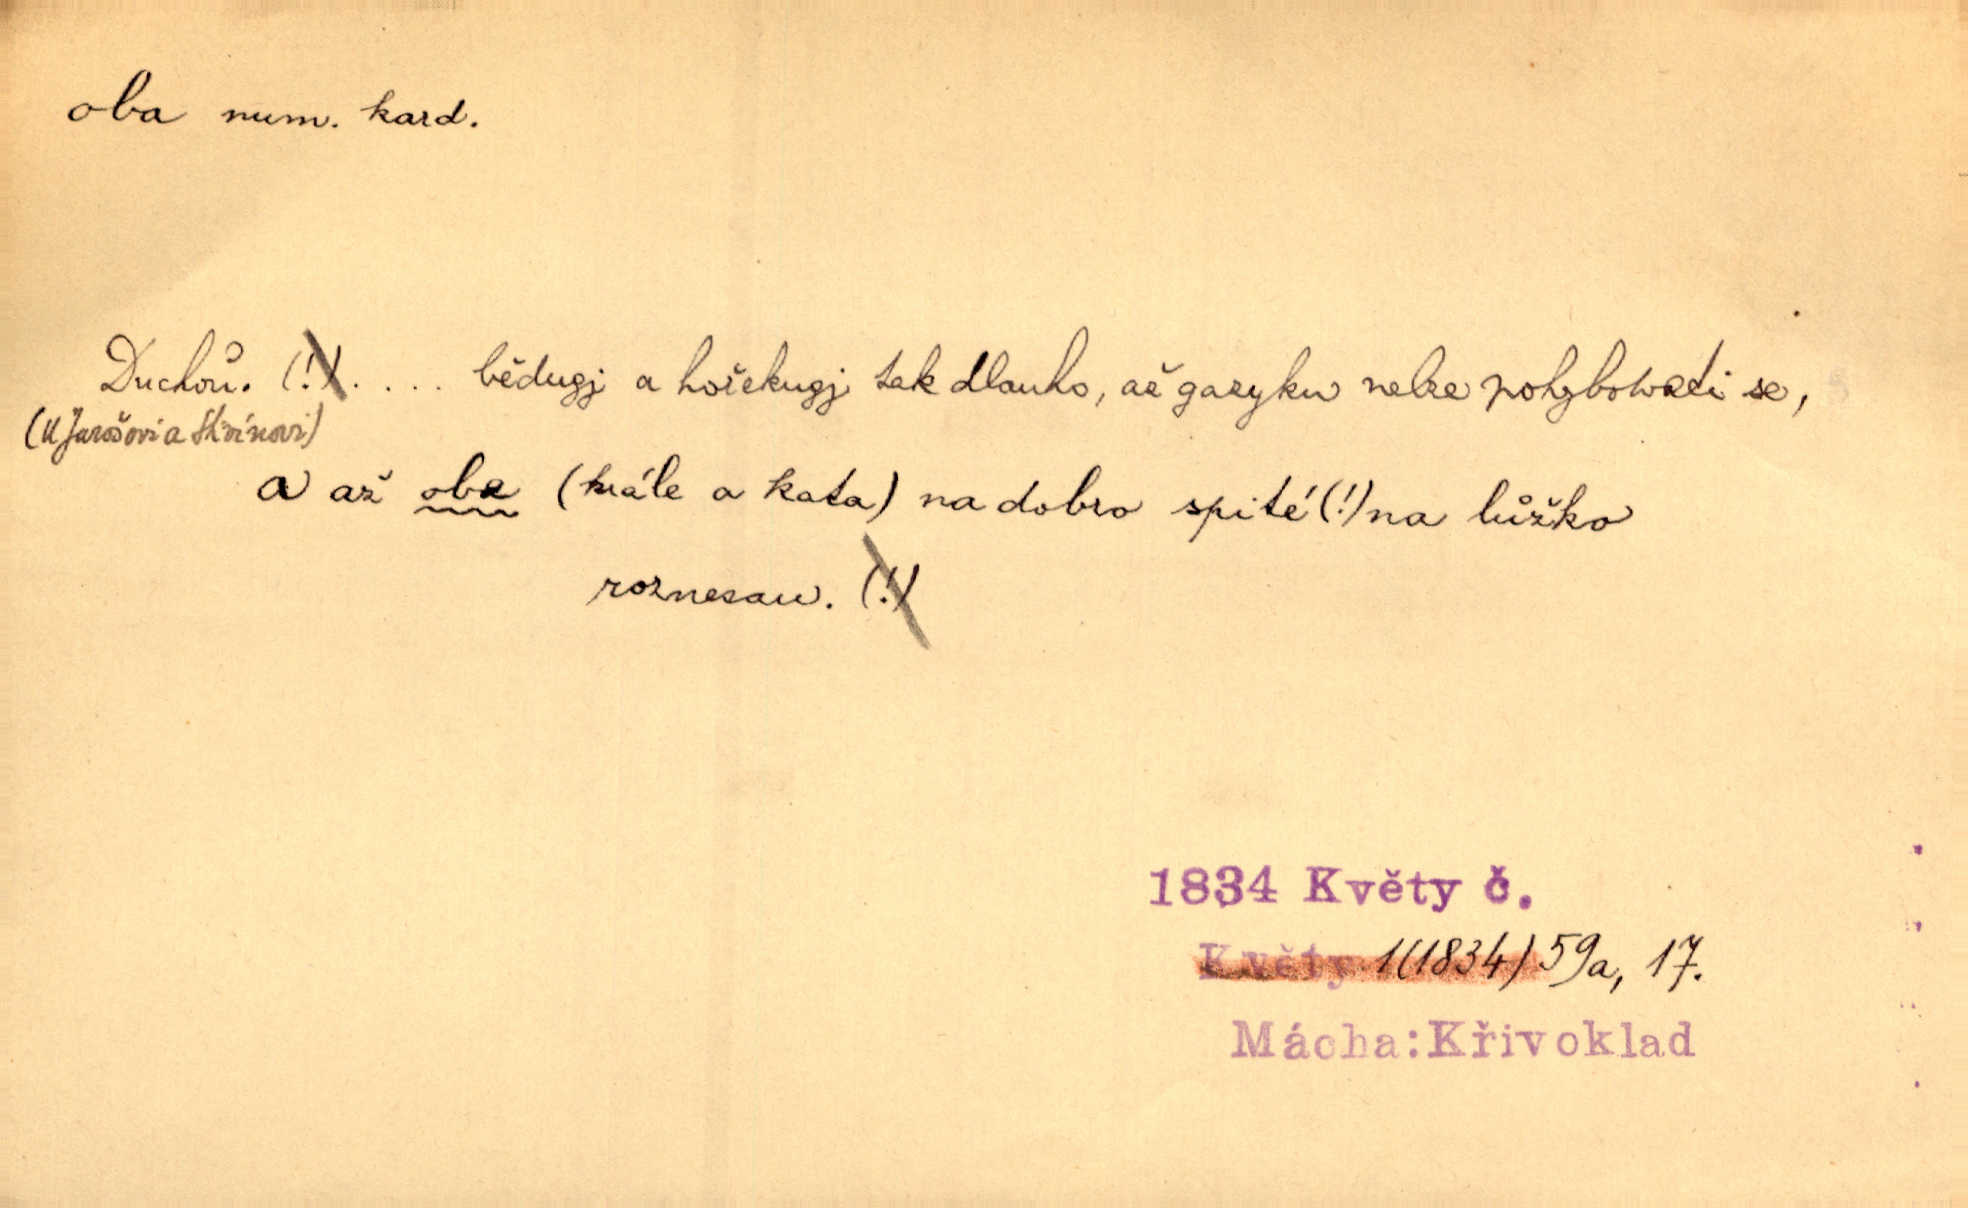 oba num. kard.
Duchoň. (!) . . . . bědugj a hořekugj tak dlauho, až gazyku nelze pohybowati se,
(U Jarošovi a
a až oba (krále a kata) na dobro spité (!) na lůžko
roznesau. (!)
1834 Květy č.
Květy 1(1834) 59a, 17.
Mácha: Křivoklad